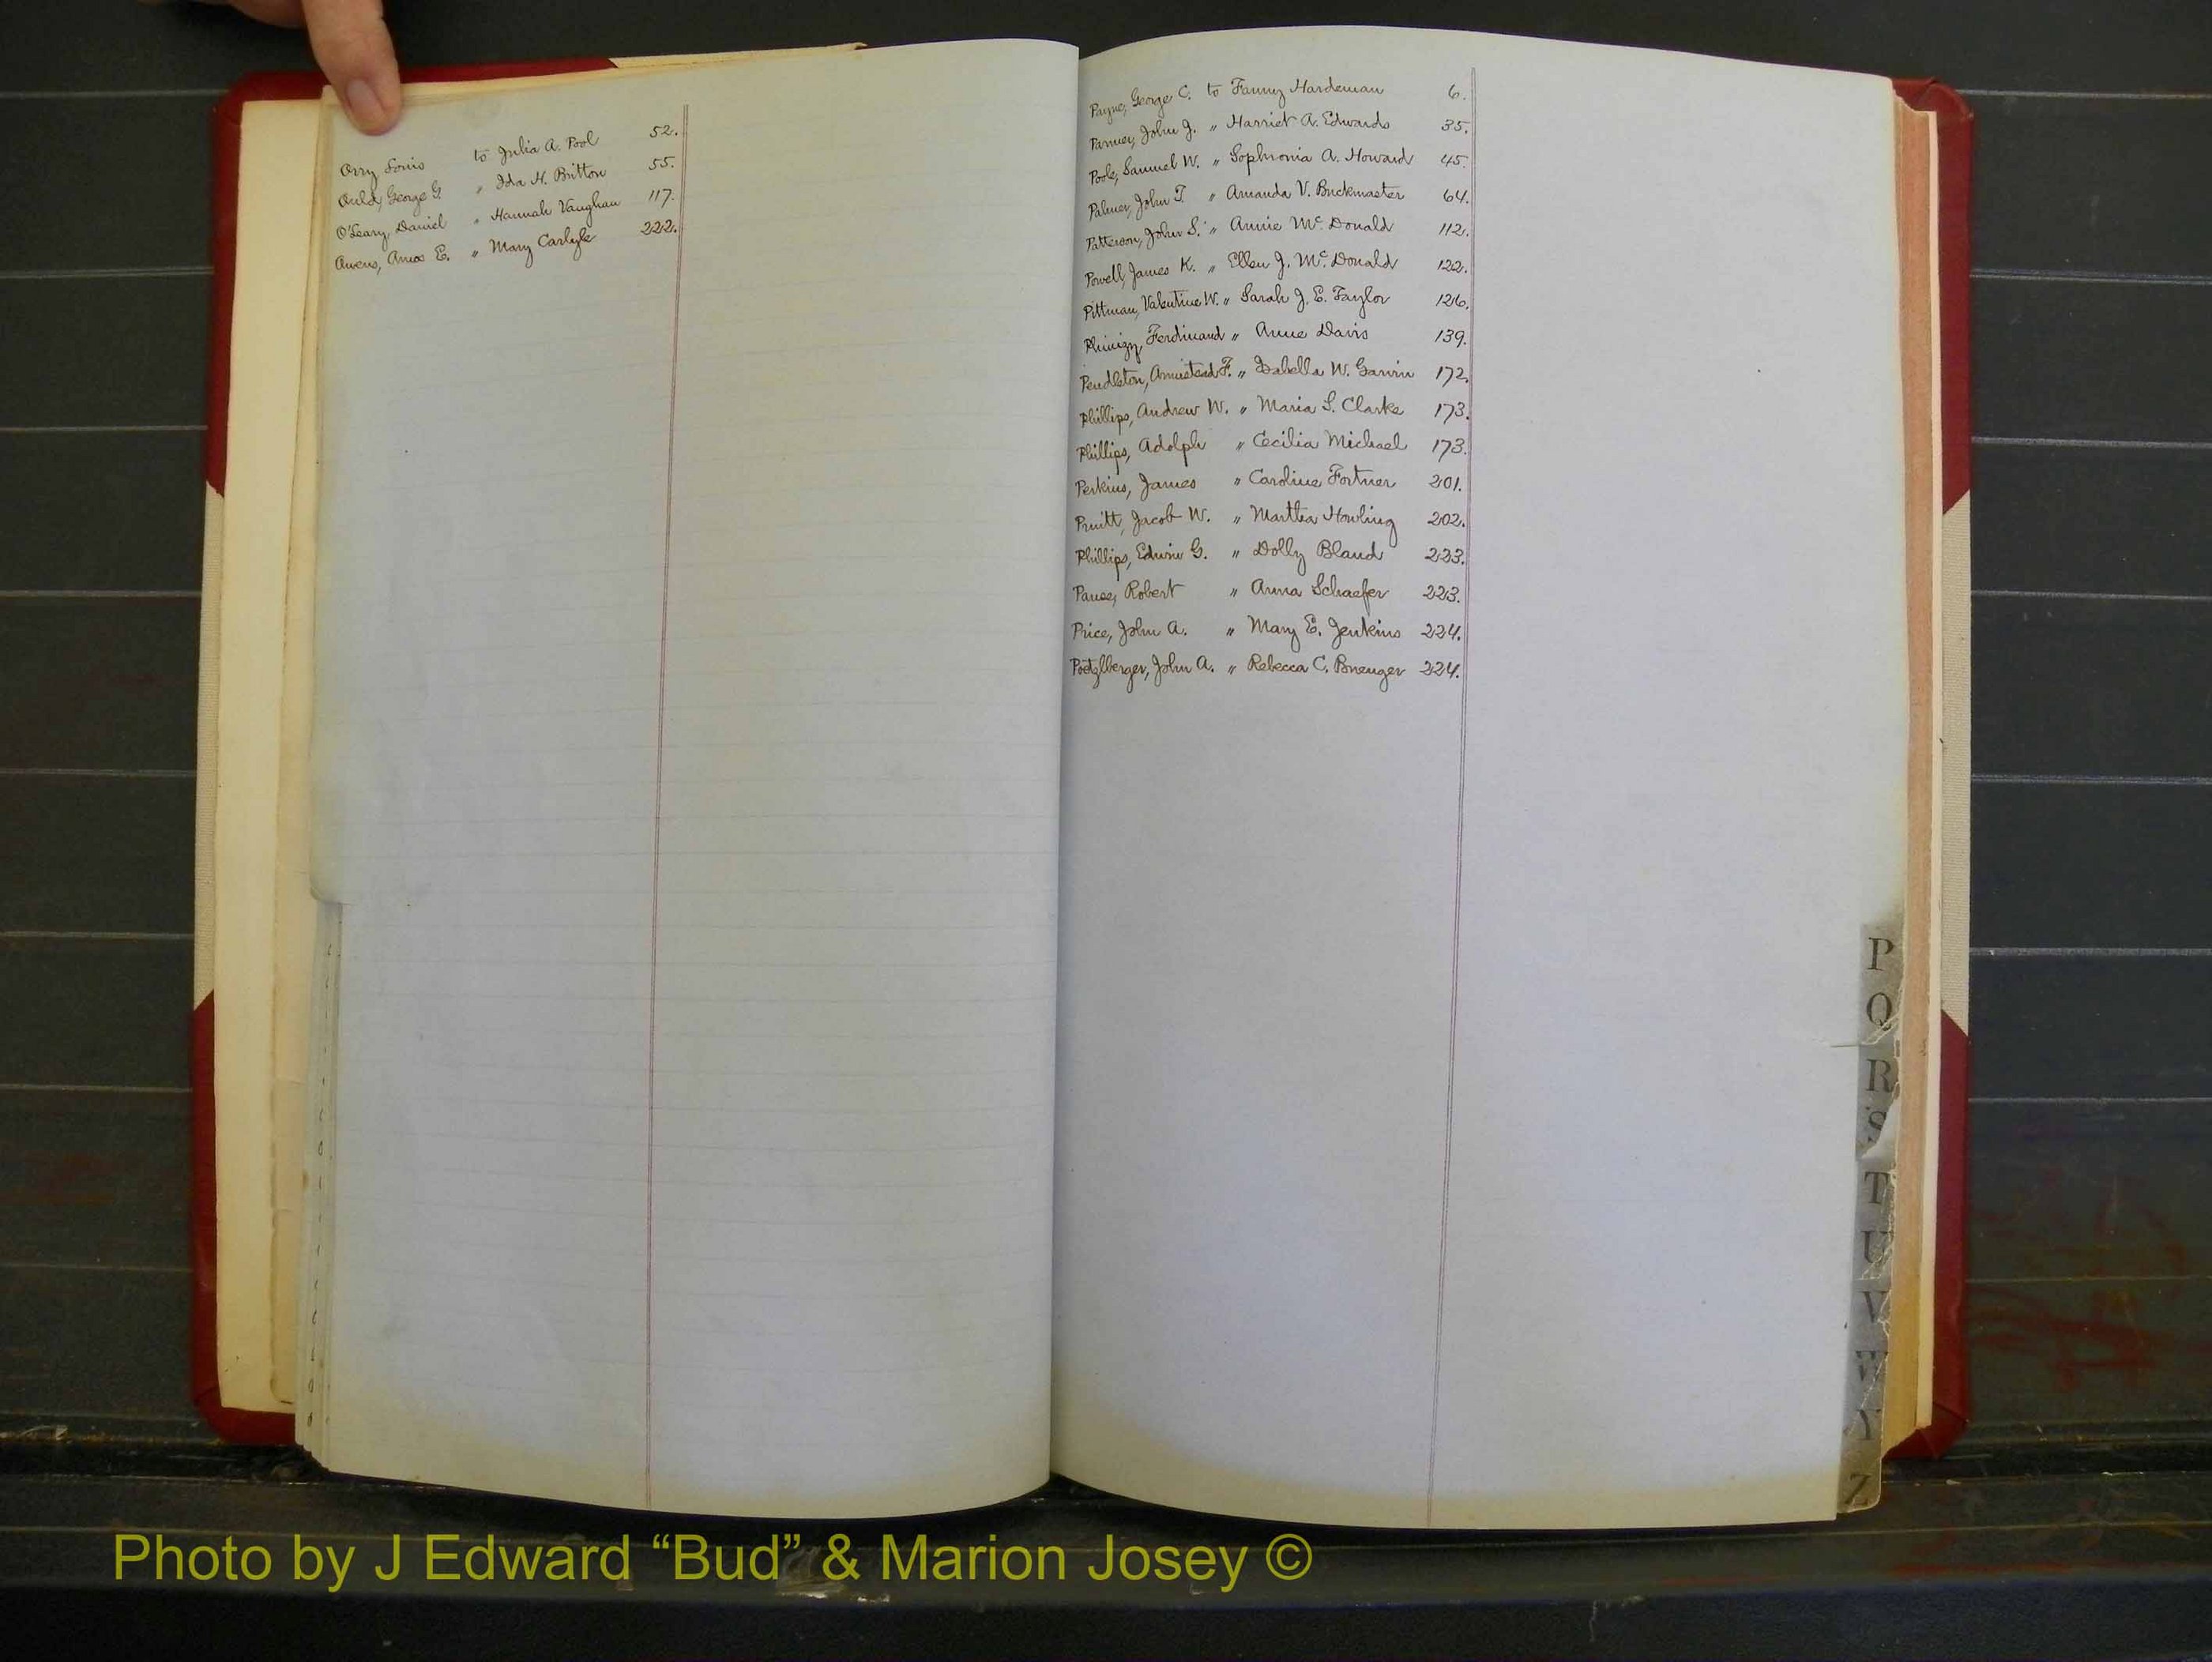 Orry Louis to Julia A. Pool 52.
Auld, George G. " Ida H. Britton 55.
O'Leary, Daniel " Hannah Vaughan 117.
Owens, Amos E. " Mary Carlyle 222.
Payne, George C. to Fanny Hardeman 6.
Parmer, John J. " Harriet A. Edwards 35.
Poole, Samuel W. " Sophronia A. Howard 45.
Palmer, John T. " Amanda V. Buckmaster 64.
Patterson, John S. " Annie Mc Donald 112.
Powell, James K. " Ellen J. Mc Donald 122.
Pittman, Valentine W. " Sarah J. E. Taylor 126.
Phinizy, Ferdinand " Anne Davis 139.
Pendleton, Armistead F. " Isabella W. Garvin 172.
Phillips, Andrew W. " Maria S. Clarke 173.
Phillips, Adolph " Cecilia Michael 173.
Perkins, James " Caroline Fortner 201.
Pruitt, Jacob W. " Martha Howling 202.
Phillips, Edwin G. " Dolly Bland 223.
Pause, Robert " Anna Schaefer 223.
Price, John A. " Mary E. Jenkins 224.
Poetzlberger, John A. " Rebecca C. 224.
P
Q
R
S
T
U
V
W
Y
Z
Photo by J Edward “Bud” & Marion Josey ©